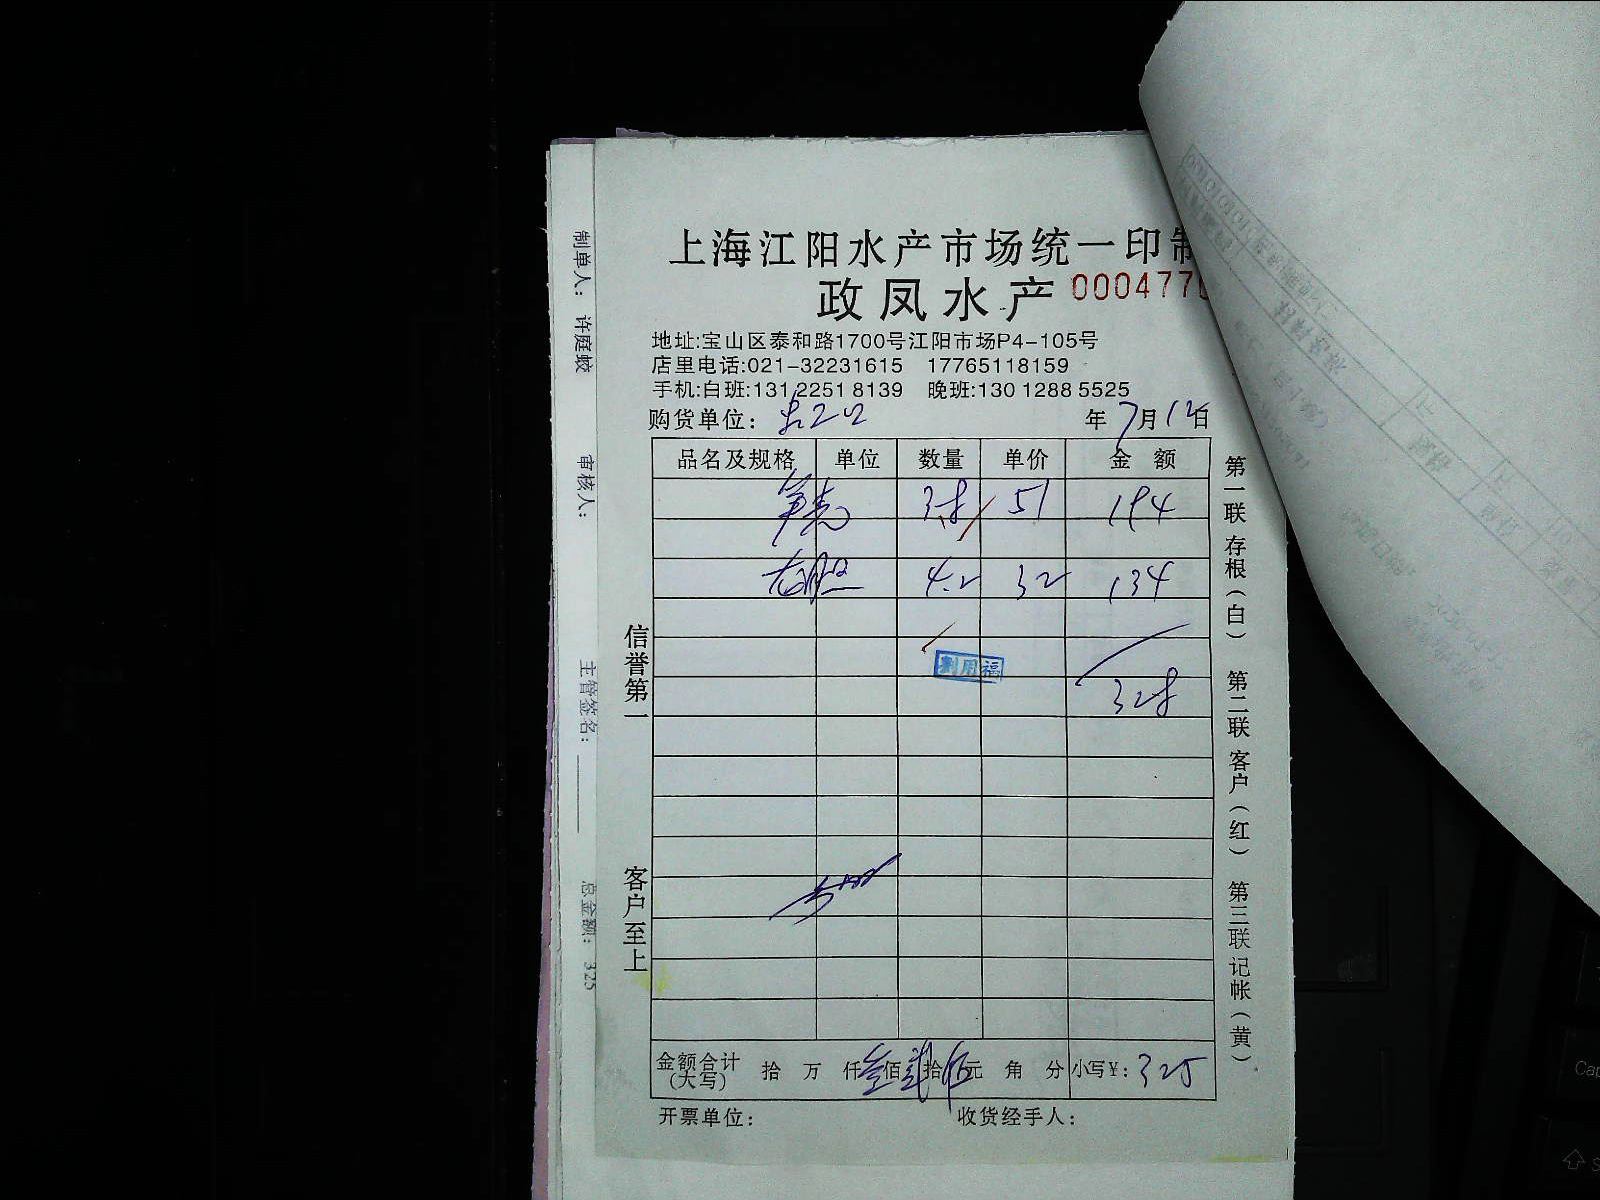 上海江阳水产市场统一印制
政凤水产 000477
地址:宝山区泰和路1700号江阳市场P4-105号
店里电话:021-32231615 17765118159
手机:白班:131 2251 8139 晚班:130 1288 5525
购货单位: 年 7 月 12 日
品名及规格 单位 数量 单价 金 额
3.8 51 194
4.2 32 134
利用福
328
金额合计(大写) 拾 万 仟 叁 佰 贰 拾 伍 元 角 分 小写¥: 325
开票单位: 收货经手人:
信誉第一 客户至上
第一联 存根(白) 第二联 客户(红) 第三联 记帐(黄)
制单人: 许庭蛟 审核人: 主管签名: 总金额: 325